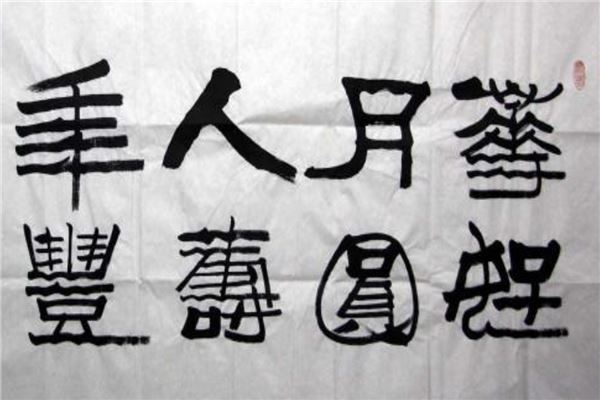 華好
月圓
人壽
年豐